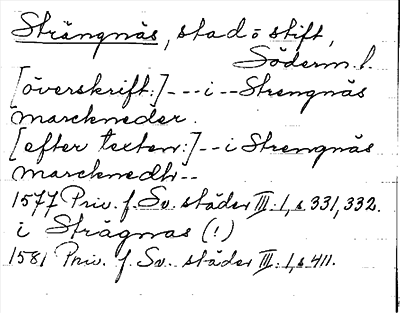 Strängnäs, stad o stift,
Söderm. l.
[överskrift:]---i--Strengnäs
marckneder.
[efter texten:]--i Strengnäs
marcknedh--
1577 Priv. f. Sv. städer III:1, s 331, 332.
i Strägnas (!)
1581 Priv. f. Sv. städer III:1, s 411.